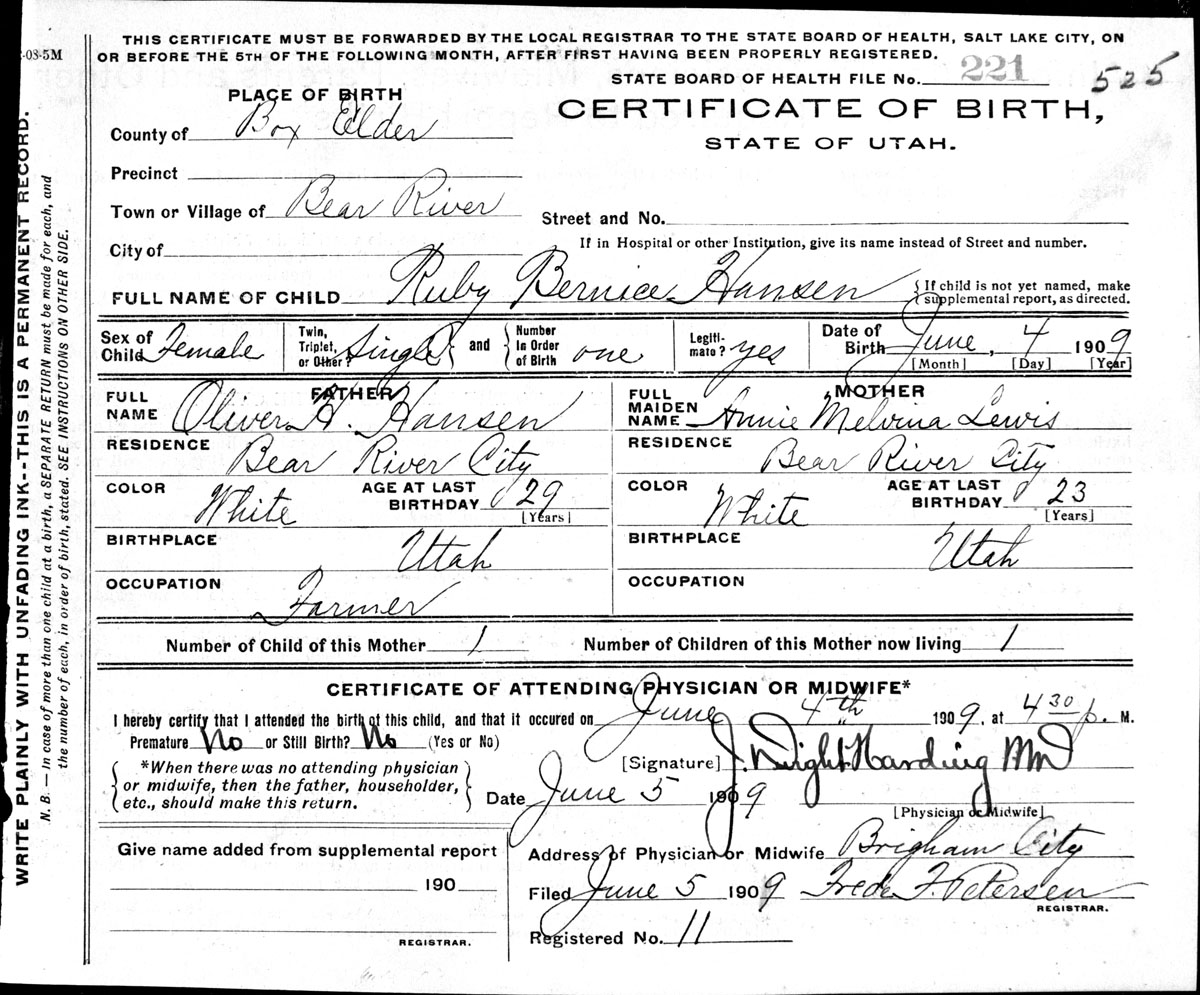 THIS CERTIFICATE MUST BE FORWARDED BY THE LOCAL REGISTRAR TO THE STATE BOARD OF HEALTH, SALT LAKE CITY, ON
OR BEFORE THE 5TH OF THE FOLLOWING MONTH, AFTER FIRST HAVING BEEN PROPERLY REGISTERED.
-08-5M
STATE BOARD OF HEALTH FILE No. 221 525
PLACE OF BIRTH
CERTIFICATE OF BIRTH,
STATE OF UTAH.
County of Box Elder
Precinct
Town or Village of Bear River
Street and No.
If in Hospital or other Institution, give its name instead of Street and number.
City of
FULL NAME OF CHILD Ruby Bernice Hansen
{If child is not yet named, make
supplemental report, as directed.
Sex of Child Female
Twin, Triplet, or Other? Single
and
Number in Order of Birth one
Legiti-mate? yes
Date of Birth June, 4 1909
[Month] [Day] [Year]
FATHER
FULL NAME Oliver H. Hansen
RESIDENCE Bear River City
COLOR White
AGE AT LAST BIRTHDAY 29
[Years]
BIRTHPLACE Utah
OCCUPATION Farmer
MOTHER
FULL MAIDEN NAME Annie Melvina Lewis
RESIDENCE Bear River City
COLOR White
AGE AT LAST BIRTHDAY 23
[Years]
BIRTHPLACE Utah
OCCUPATION
Number of Child of this Mother 1 Number of Children of this Mother now living 1
CERTIFICATE OF ATTENDING PHYSICIAN OR MIDWIFE*
I hereby certify that I attended the birth of this child, and that it occured on June 4th 1909, at 4 30 p. M.
Premature No or Still Birth? No (Yes or No)
*When there was no attending physician
or midwife, then the father, householder,
etc., should make this return.
[Signature] J. Dwight Harding MD
Date June 5 1909
[Physician or Midwife]
Address of Physician or Midwife Brigham City
Filed June 5 1909 Frede F. Petersen
REGISTRAR.
Registered No. 11
Give name added from supplemental report
190
REGISTRAR.
WRITE PLAINLY WITH UNFADING INK--THIS IS A PERMANENT RECORD.
N. B. — In case of more than one child at a birth, a SEPARATE RETURN must be made for each, and
the number of each, in order of birth, stated. SEE INSTRUCTIONS ON OTHER SIDE.